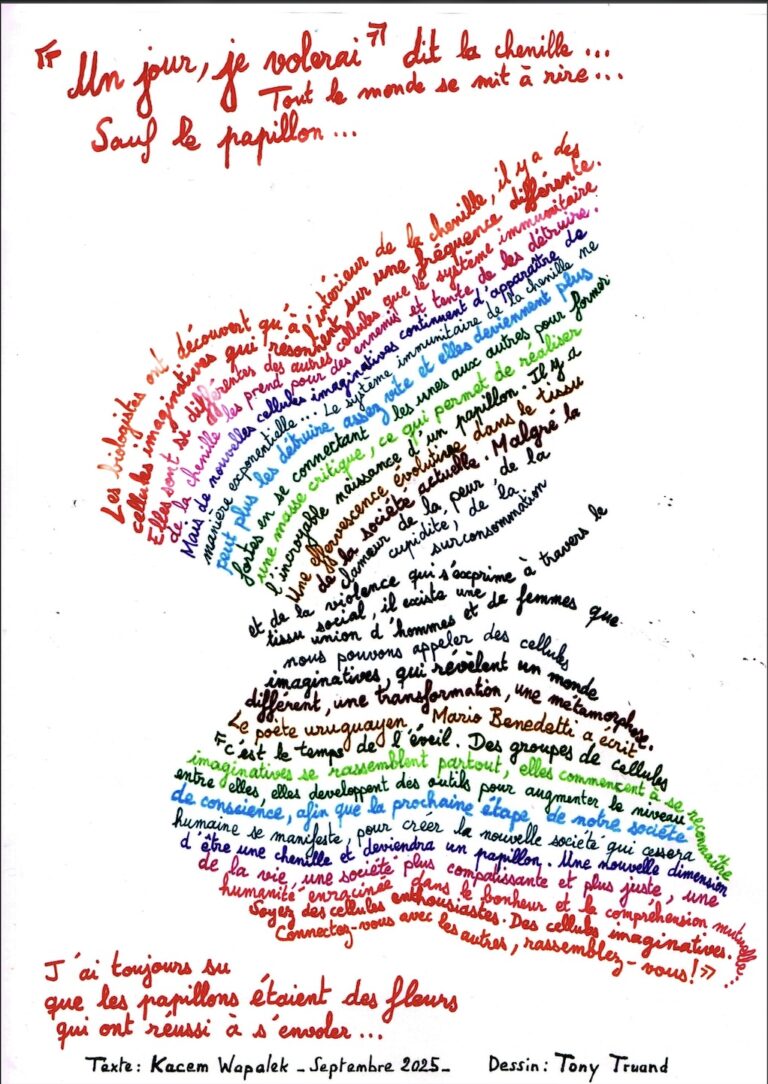 « Un jour, je volerai » dit la chenille ...
Tout le monde se mit à rire ...
Sauf le papillon ...
Les biologistes ont découvert qu'à l'intérieur de la chenille, il y a des
cellules imaginatives qui résonnent sur une fréquence différente.
Elles sont si différentes des autres cellules que le système immunitaire
de la chenille les prend pour des ennemis et tente de les détruire.
Mais de nouvelles cellules imaginatives continuent d'apparaître de
manière exponentielle ... Le système immunitaire de la chenille ne
peut plus les détruire assez vite et elles deviennent plus
fortes en se connectant les unes aux autres pour former
une masse critique, ce qui permet de réaliser
l'incroyable naissance d'un papillon. Il y a
Une effervescence évolutive dans le tissu
de la société actuelle. Malgré la
clameur de la peur, de la
cupidité, de la
surconsommation
et de la violence qui s'exprime à travers le
tissu social, il existe une
union d'hommes et de femmes que
nous pouvons appeler des cellules
imaginatives, qui révèlent un monde
différent, une transformation, une métamorphose.
Le poète uruguayen Mario Benedetti a écrit
« c'est le temps de l'éveil. Des groupes de cellules
imaginatives se rassemblent partout, elles commencent à se reconnaître
entre elles, elles developpent des outils pour augmenter le niveau
de conscience, afin que la prochaine étape de notre société
humaine se manifeste, pour créer la nouvelle société qui cessera
d'être une chenille et deviendra un papillon. Une nouvelle dimension
de la vie, une société plus compatissante et plus juste, une
humanité enracinée dans le bonheur et la compréhension mutuelle...
Soyez des cellules enthousiastes. Des cellules imaginatives.
Connectez-vous avec les autres, rassemblez-vous! »
J'ai toujours su
que les papillons étaient des fleurs
qui ont réussi à s'envoler ...
Texte: Kacem Wapalek - Septembre 2025 - Dessin: Tony Truand